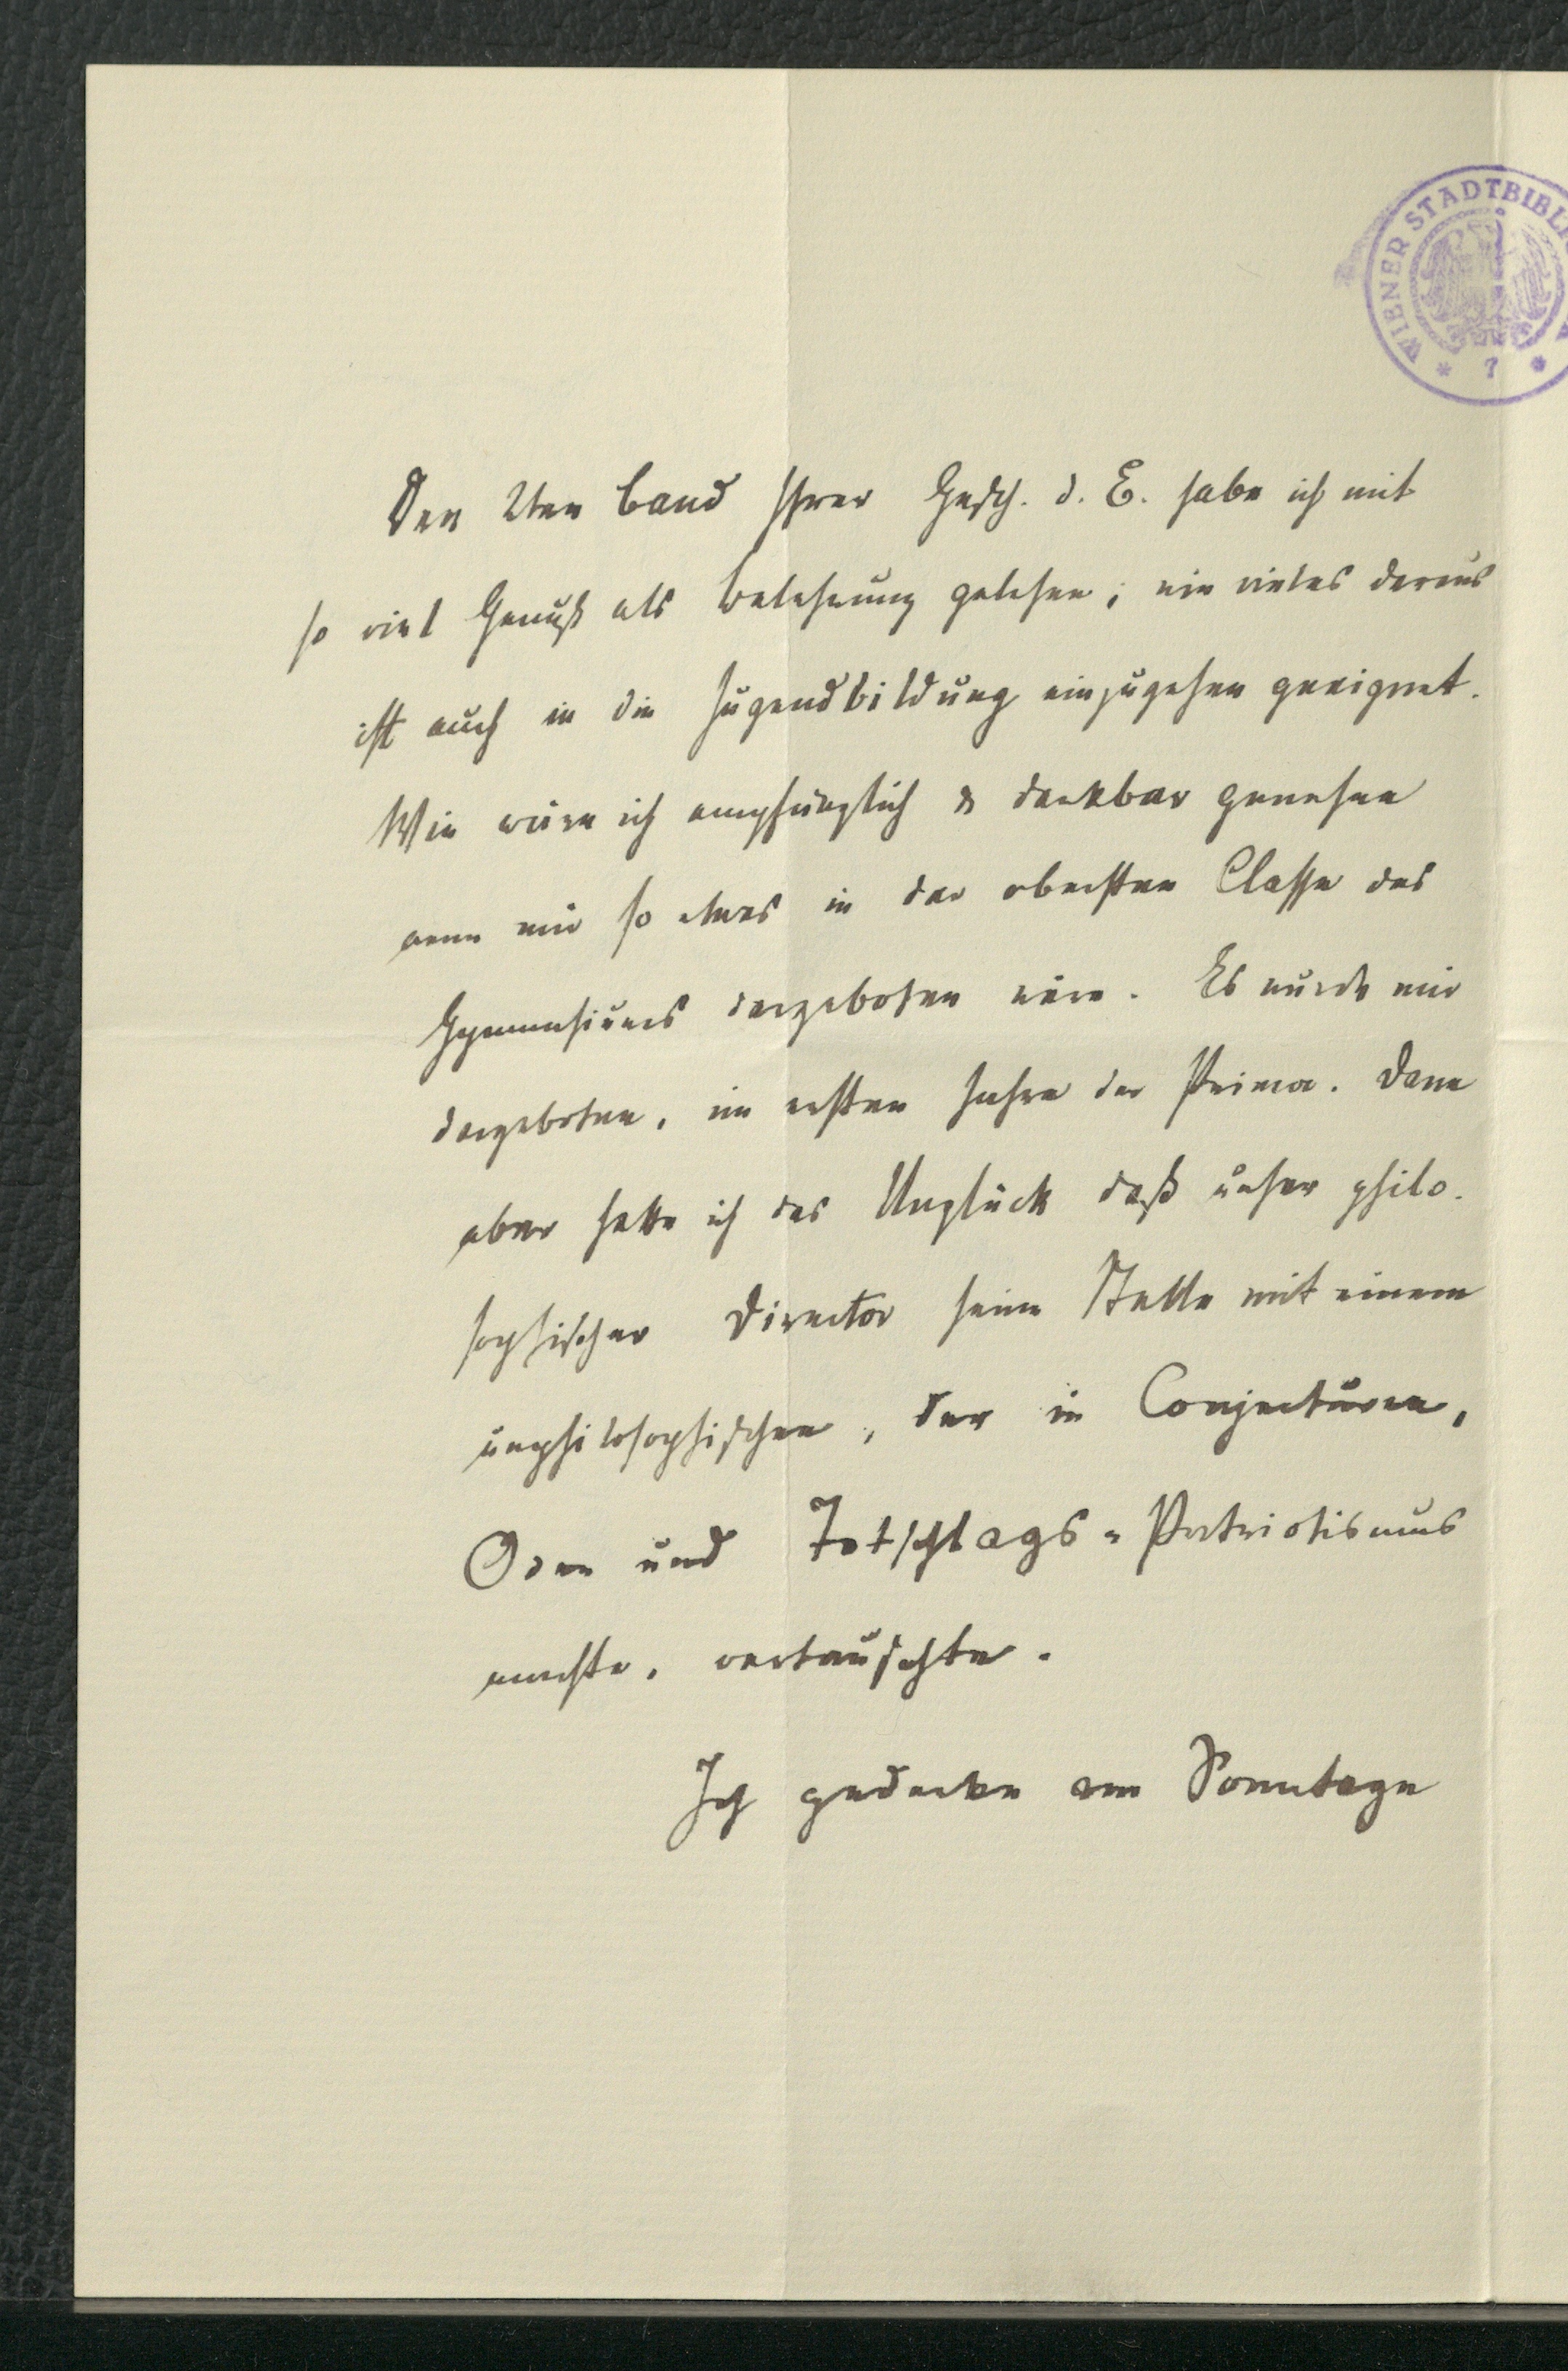 WIENER STADTBIBLI
* 7 *
Den 2ten Band Ihrer Gesch. d. E. habe ich mit
so viel Genuß als Belehrung gelesen; wie vieles daraus
ist auch in die Jugendbildung einzugehen geeignet.
Wie wäre ich empfänglich & dankbar gewesen
wenn mir so etwas in der obersten Classe des
Gymnasiums dargeboten wäre. Es wurde mir
dargeboten, im ersten Jahre der Prima. Dann
aber hatte ich das Unglück daß unser philo-
sophischer Director seine Stelle mit einem
unphilosophischen, der in Conjecturen,
Oden und Totschlags-Patriotismus
machte, vertauschte.
Ich gedenke am Sonntage